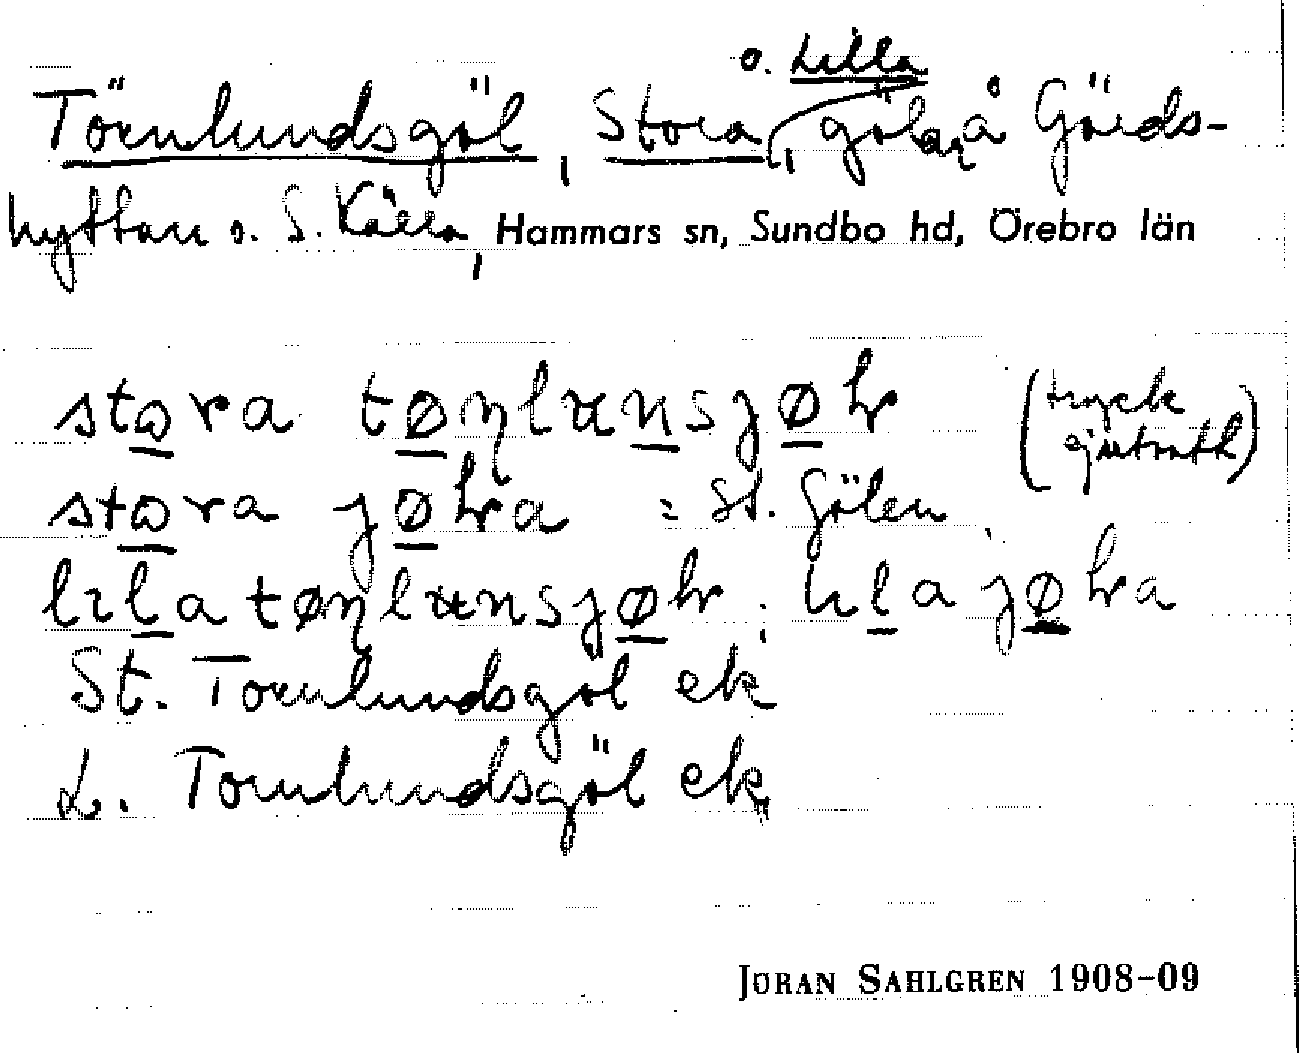 o. Lilla
Törnlundsgöl, Stora, gölar å Gärds-
hyttan o. S. Källa, Hammars sn, Sundbo hd, Örebro län
stωra tøɳlunsjøɽ (tryck
ej utsatt)
stωra jøɽa = St. Gölen.
lɩla tøɳlunsjøɽ; lɩla jøɽa
St. Törnlundsgöl ek
L. Törnlundsgöl ek
JÖRAN SAHLGREN 1908-09